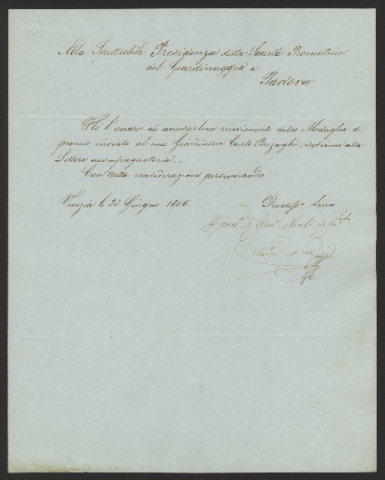 Alla Spettabile Presidenza della Società Promotrice
del Giardinaggio a
Padova
Ho l'onore di accusarle ricevimento della Medaglia di
premio inviata al mio Giardiniere Carlo insieme alla
Lettera accompagnatoria.
Con tutta considerazione
Venezia li 23 Giugno
Devotiss. Servo